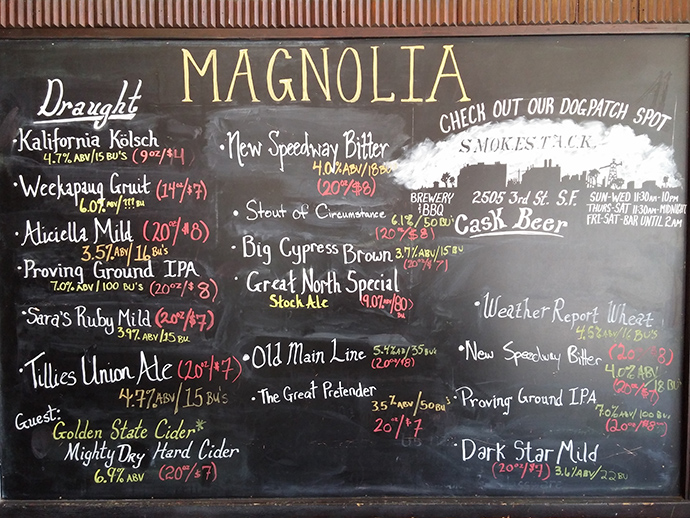 MAGNOLIA
Draught
• Kalifornia Kölsch
4.7% ABV/15 BU's (9oz/$4
• Weekapaug Gruit (14oz/$7)
6.0% ABV/??? BU
• Aliciella Mild (20oz/$8)
3.5% ABV/16 BU's
• Proving Ground IPA
7.0% ABV/100 BU's (20oz/$8)
• Sara's Ruby Mild (20oz/$7)
3.9% ABV/15 BU
• Tillies Union Ale (20oz/$7)
4.7% ABV/15 BU's
Guest:
Golden State Cider*
Mighty Dry Hard Cider
6.9% ABV (20oz/$7)
• New Speedway Bitter
4.0% ABV/18 BU
(20oz/$8)
• Stout of Circumstance
6.1%/50 BU's
(20oz/$8)
• Big Cypress Brown 3.7% ABV/15 BU
(20oz/$7)
• Great North Special
Stock Ale 9.0% ABV/80 BU
• Old Main Line 5.4% ABV/35 BU's
(20oz/$8)
• The Great Pretender
3.5% ABV/50 BU's
20oz/$7
CHECK OUT OUR DOGPATCH SPOT
SMOKESTACK
BREWERY
& BBQ
2505 3rd St. S.F.
SUN-WED 11:30AM-10PM
THURS-SAT 11:30AM-MIDNIGHT
FRI-SAT-BAR UNTIL 2AM
Cask Beer
• Weather Report Wheat
4.5% ABV/16 BU's
(20oz/$8)
• New Speedway Bitter
4.0% ABV/18 BU's
(20oz/$7)
• Proving Ground IPA
7.0% ABV/100 BU's
(20oz/$8)
• Dark Star Mild
(20oz/$7) 3.6% ABV/22 BU